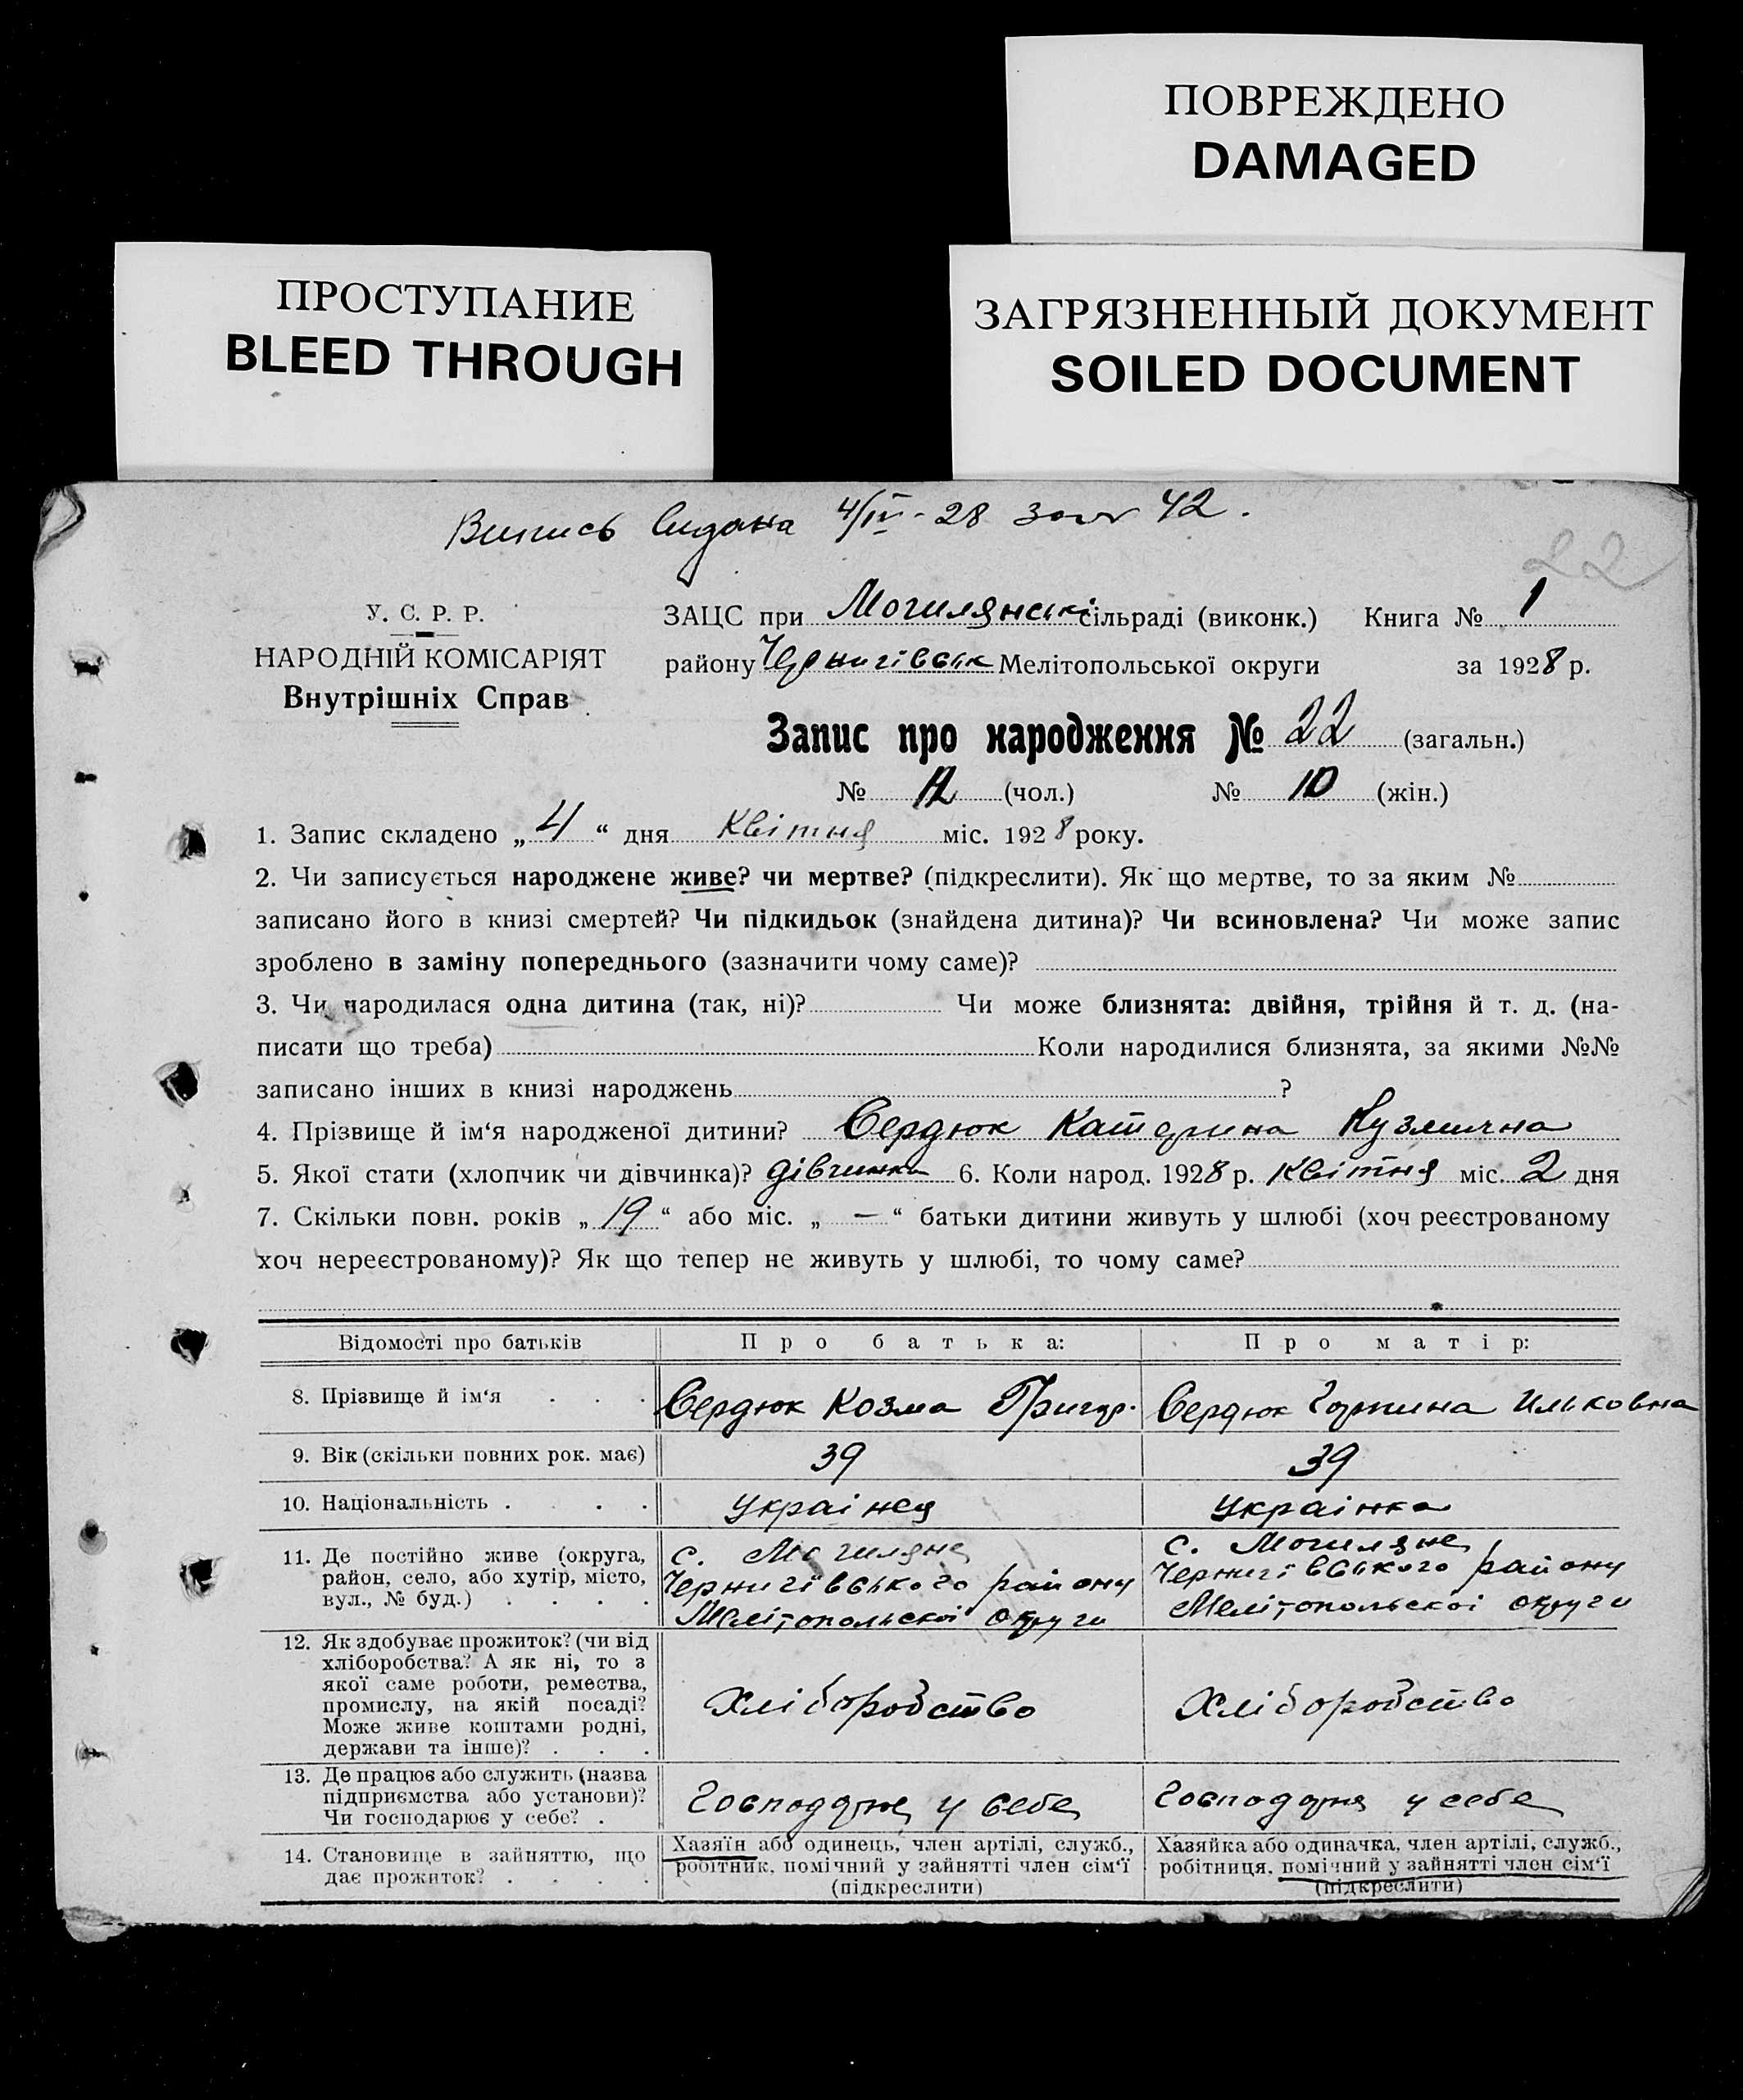 ПОВРЕЖДЕНО
DAMAGED
ПРОСТУПАНИЕ
BLEED THROUGH
ЗАГРЯЗНЕННЫЙ ДОКУМЕНТ
SOILED DOCUMENT
Випись видана 4/IV-28 42.
22
У. С. Р. Р.
НАРОДНІЙ КОМІСАРІЯТ
Внутрішніх Справ
ЗАЦС при Могилянські сільраді (виконк.) Книга № 1
району Чернигівськ Мелітопольської округи за 1928 р.
Запис про народження № 22 (загальн.)
№ 12 (чол.) № 10 (жін.)
1. Запис складено „ 4 “ дня Квітня міс. 1928 року.
2. Чи записується народжене живе? чи мертве? (підкреслити). Як що мертве, то за яким №
записано його в книзі смертей? Чи підкидьок (знайдена дитина)? Чи всиновлена? Чи може запис
зроблено в заміну попереднього (зазначити чому саме)?
3. Чи народилася одна дитина (так, ні)? Чи може близнята: двійня, трійня й т. д. (на-
писати що треба) Коли народилися близнята, за якими №№
записано інших в книзі народжень ?
4. Прізвище й ім‘я народженої дитини? Сердюк Катерина Кузмична
5. Якої стати (хлопчик чи дівчинка)? дівчинка 6. Коли народ. 1928 р. Квітня міс. 2 дня
7. Скільки повн. років „ 19 “ або міс. „ — “ батьки дитини живуть у шлюбі (хоч реєстрованому
хоч нереєстрованому)? Як що тепер не живуть у шлюбі, то чому саме?
Відомості про батьків Про батька: Про матір:
8. Прізвище й ім‘я . . . Сердюк Козма Григор. Сердюк Ильковна
9. Вік (скільки повних рок. має) 39 39
10. Національність . . . Украінец Украінка
11. Де постійно живе (округа, район, село, або хутір, місто, вул., № буд.) . . . .
с. Могиляне
Чернигівського району
Мелітопольскоі округи
с. Могиляне
Чернигівського району
Мелітопольскоі округи
12. Як здобуває прожиток? (чи від
хліборобства? А як ні, то з
якої саме роботи, ремества,
промислу, на якій посаді?
Може живе коштами родні,
держави та інше)? . . .
Хліборобство Хліборобство
13. Де працює або служить (назва
підприємства або установи)?
Чи господарює у себе? .
Господарює у себе Господарує у себе
14. Становище в зайняттю, що
дає прожиток? . . . .
Хазяїн або одинець, член артілі, служб.,
робітник, помічний у зайнятті член сім‘ї
(підкреслити)
Хазяйка або одиначка, член артілі, служб.,
робітниця, помічний у зайнятті член сім‘ї
(підкреслити)